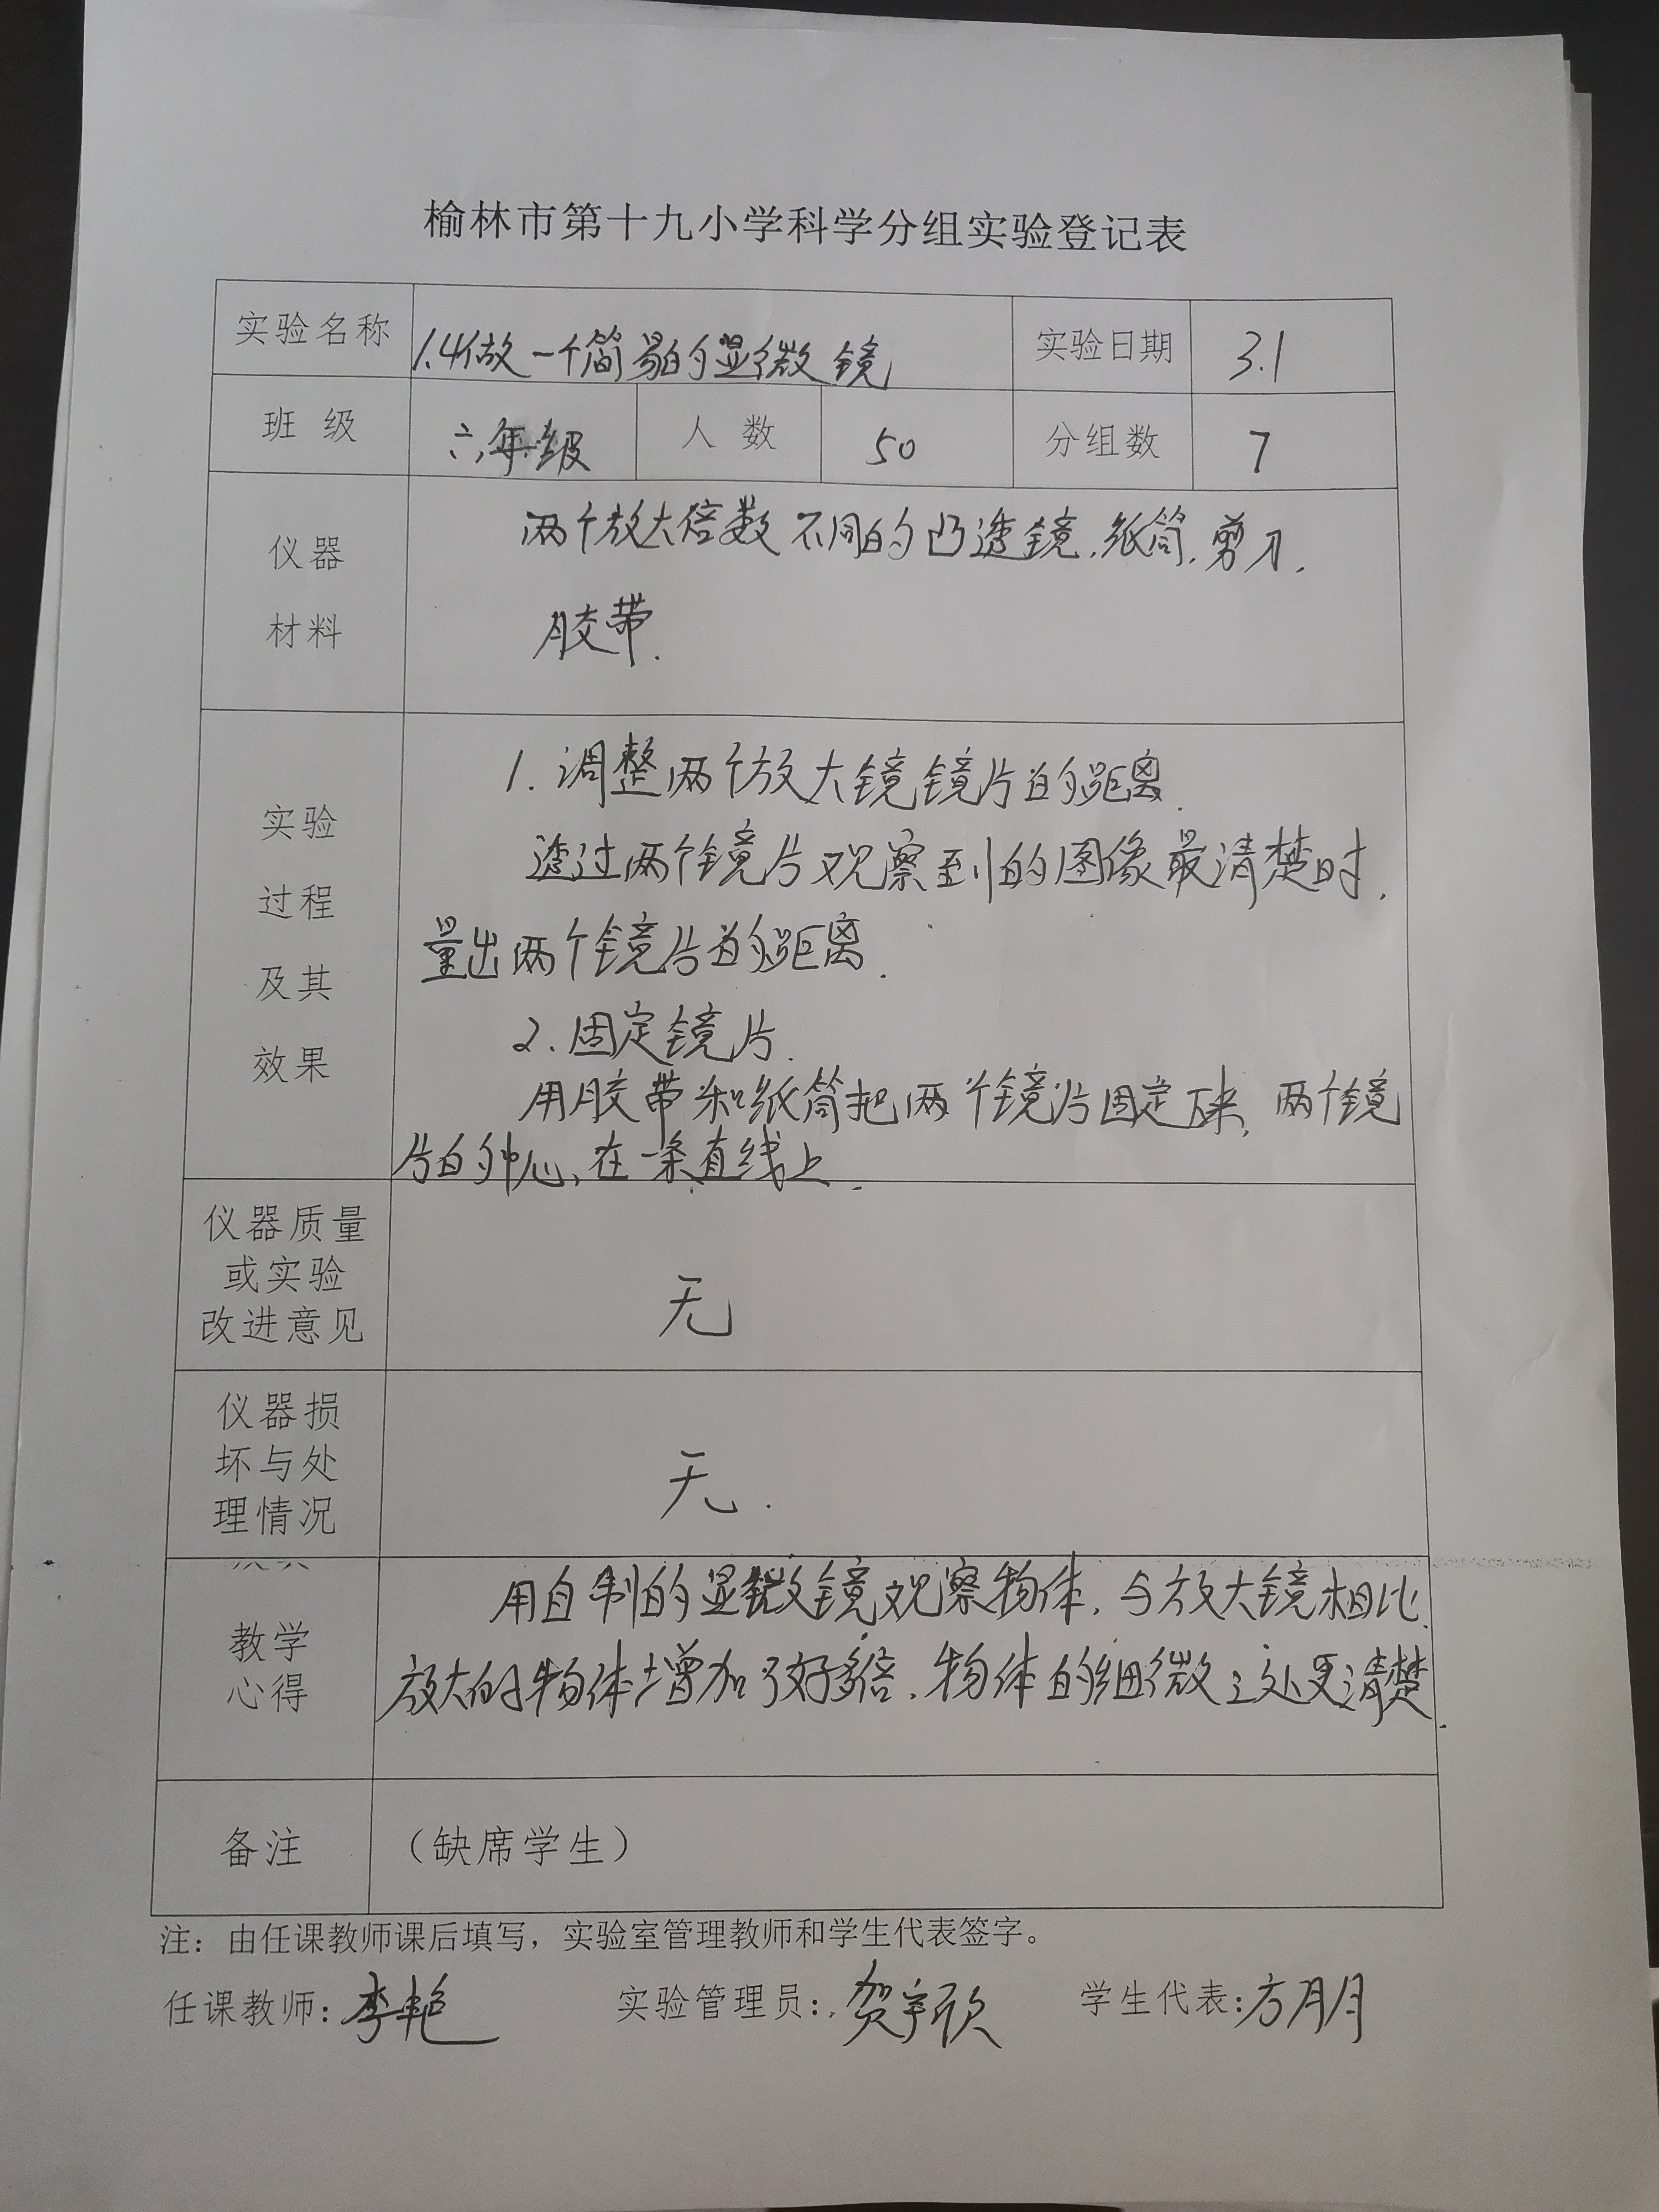 榆林市第十九小学科学分组实验登记表
实验名称 1.4做一个简易的显微镜 实验日期 3.1
班 级 六年级 人 数 50 分组数 7
仪器
材料
两个放大倍数不同的凸透镜.纸筒.剪刀.
胶带.
实验
过程
及其
效果
1.调整两个放大镜镜片的距离.
透过两个镜片观察到的图像最清楚时.
量出两个镜片的距离.
2.固定镜片.
用胶带和纸筒把两个镜片固定下来,两个镜
片的中心,在一条直线上.
仪器质量
或实验
改进意见
无
仪器损
坏与处
理情况
无.
教学
心得
用自制的显微镜观察物体,与放大镜相比.
放大的物体增加了好多倍.物体的细微之处更清楚.
备注 （缺席学生）
注：由任课教师课后填写，实验室管理教师和学生代表签字。
任课教师：李艳 实验管理员：贺宇欣 学生代表：方月月